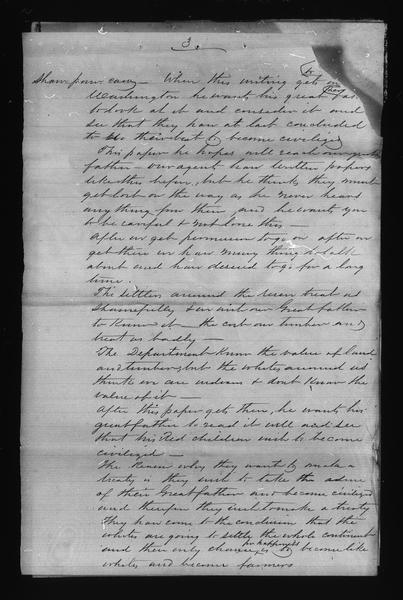 3.
Shaw-paw-caw — When this writing gets to
Washington he wants his great fa-
to look at it and consider it and
see that they have at last concluded
to do their best to become civilized
This paper he hopes will reach our great
father — our agents have written papers
like this before, but he thinks they must
get lost on the way as he never hears
anything from them, and he wants you
to be careful & not lose this —
After we get permission to go on after we
get there we have many things to talk
about and have desired to go for a long
time.
The settlers around the reserve treat us
shamefully & we wish our Great father
to know it — they cut our timber and
treat us badly —
The Department know the value of land
and timber, but the whites around us
think we are indians & dont know the
value of it
After this paper gets there, he wants his
great father to read it well and see
that his Red children wish to become
civilized —
The reason why they want to make a
treaty is they wish to take the advice
of their Great father and become civilized
and therefore they wish to make a treaty
They have come to the conclusion that the
whites are going to settle the whole continent
and their only chance for happiness is to become like
whites and become farmers